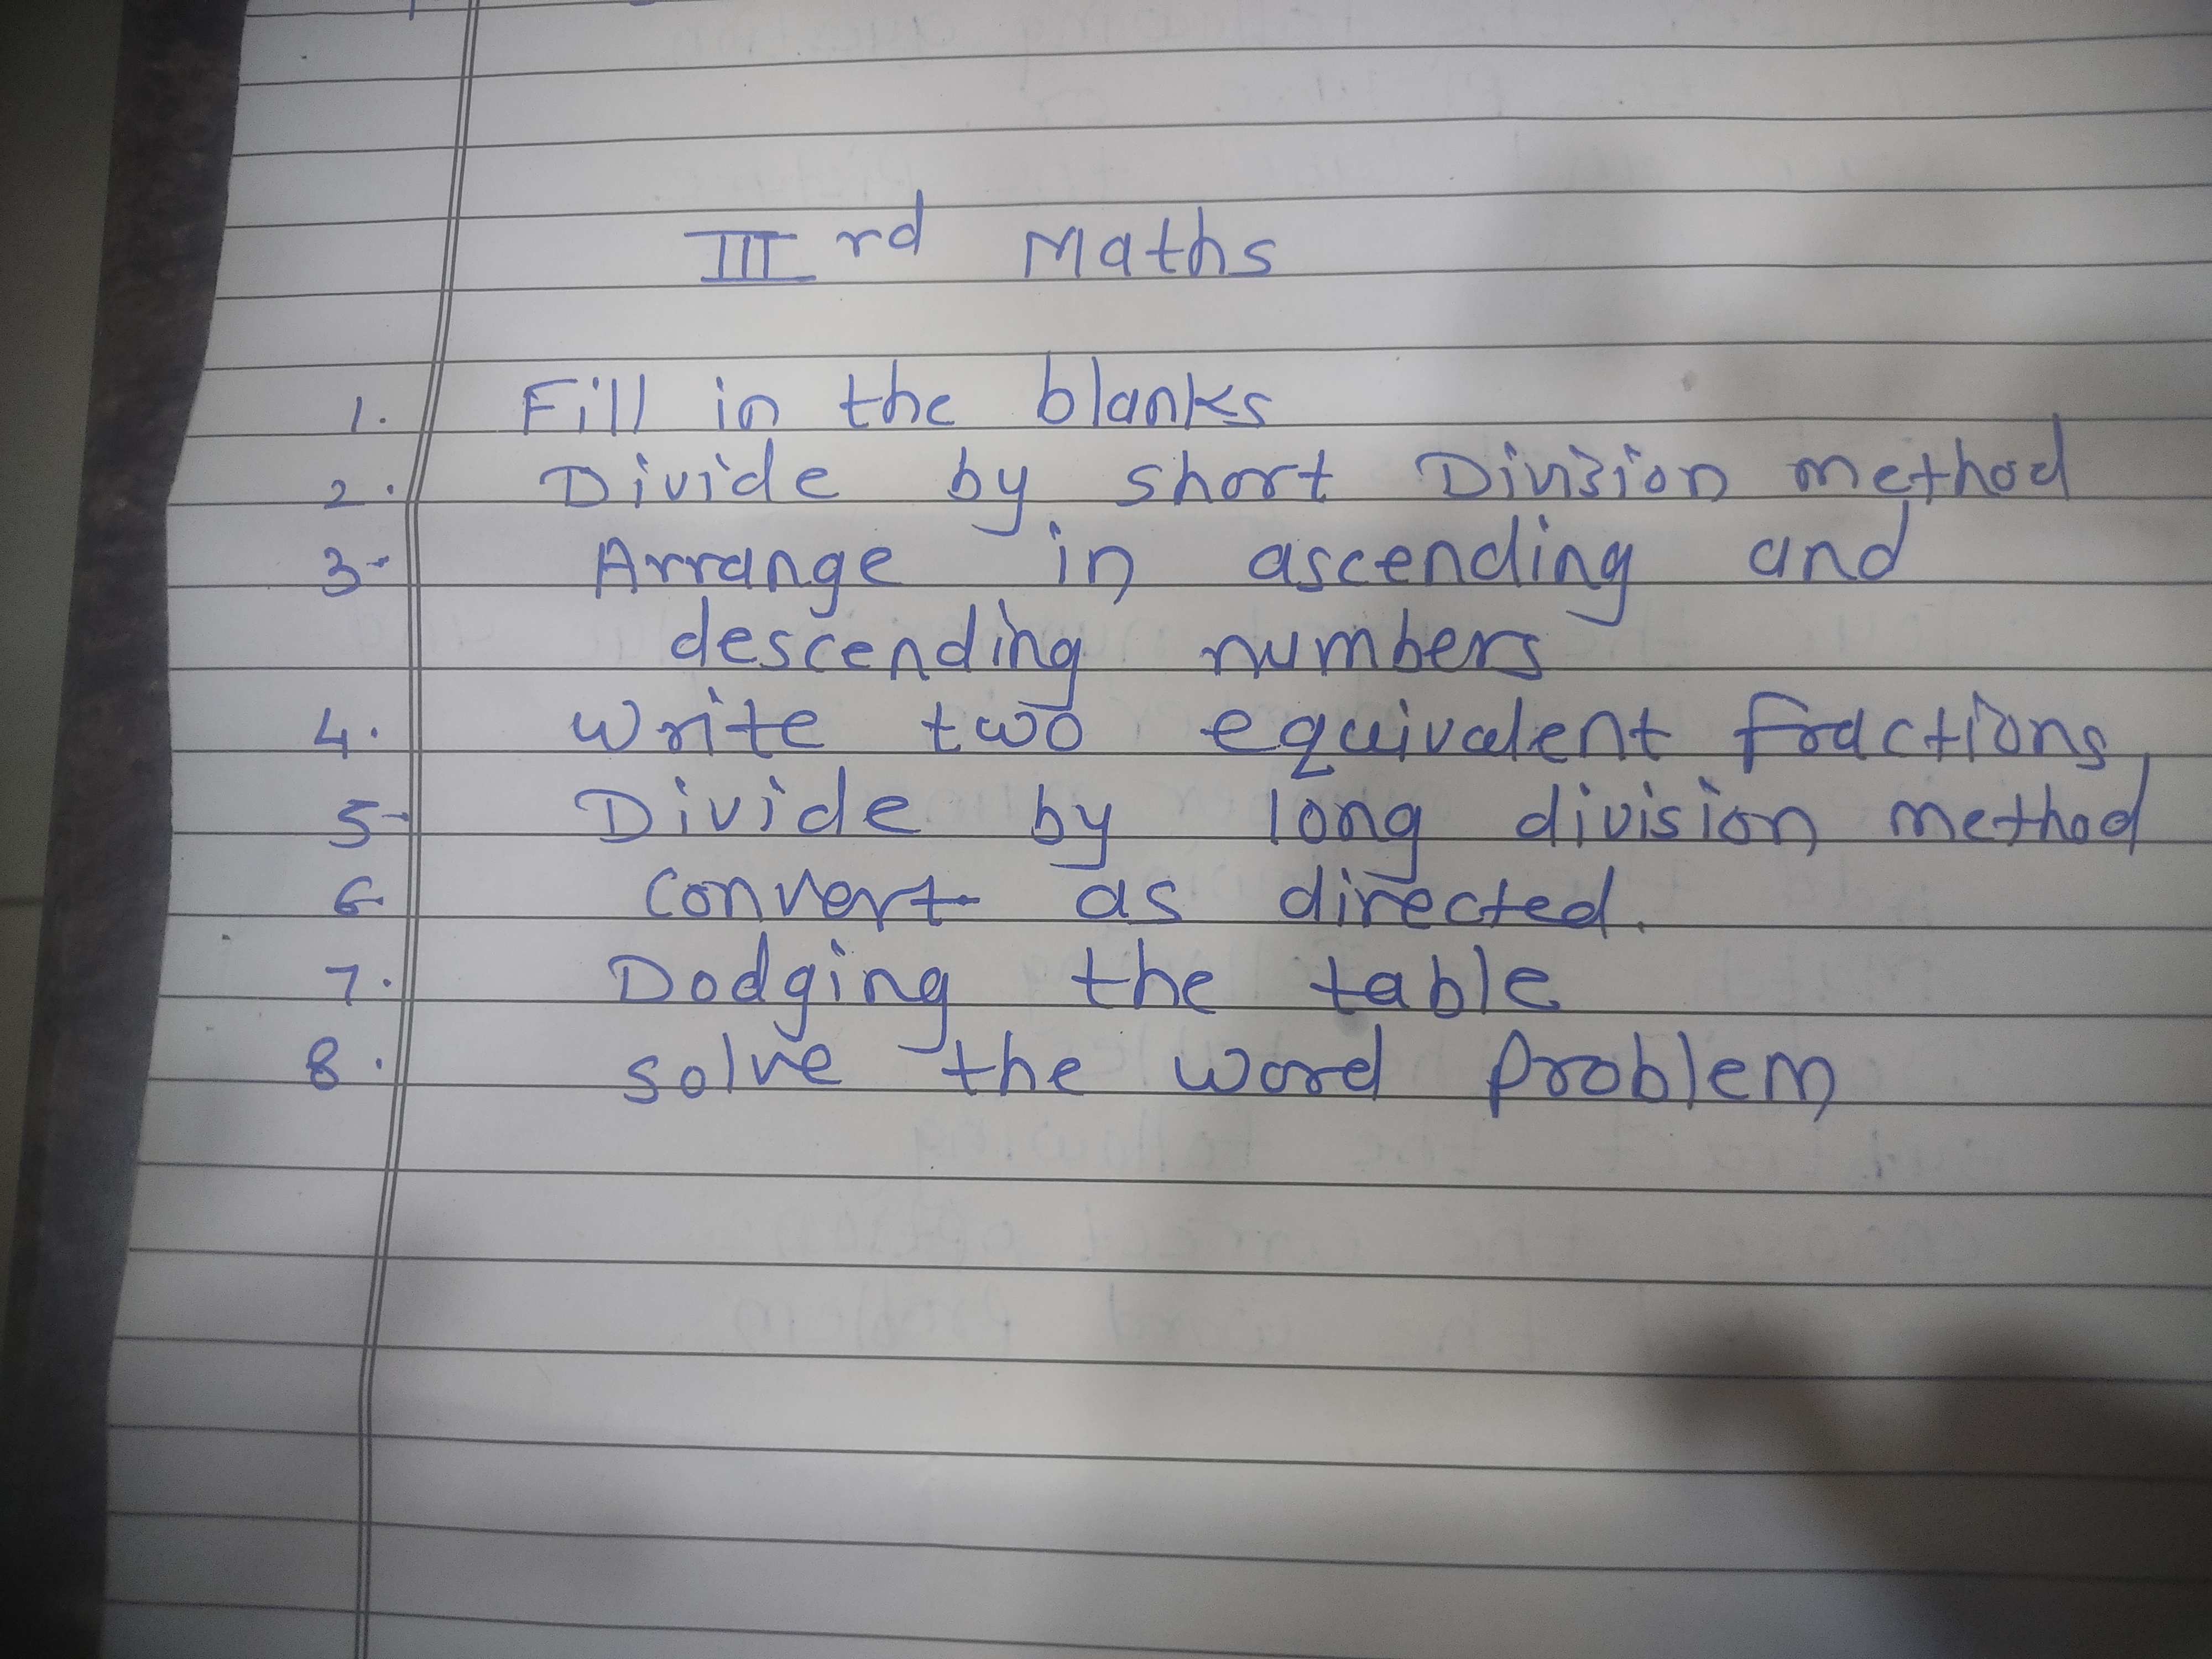 IIIrd Maths
1. Fill in the blanks
2. Divide by short Division method
3. Arrange in ascending and
descending numbers
4. Write two equivalent fractions
5. Divide by long division method
6. Convert as directed.
7. Dodging the table
8. Solve the word problem